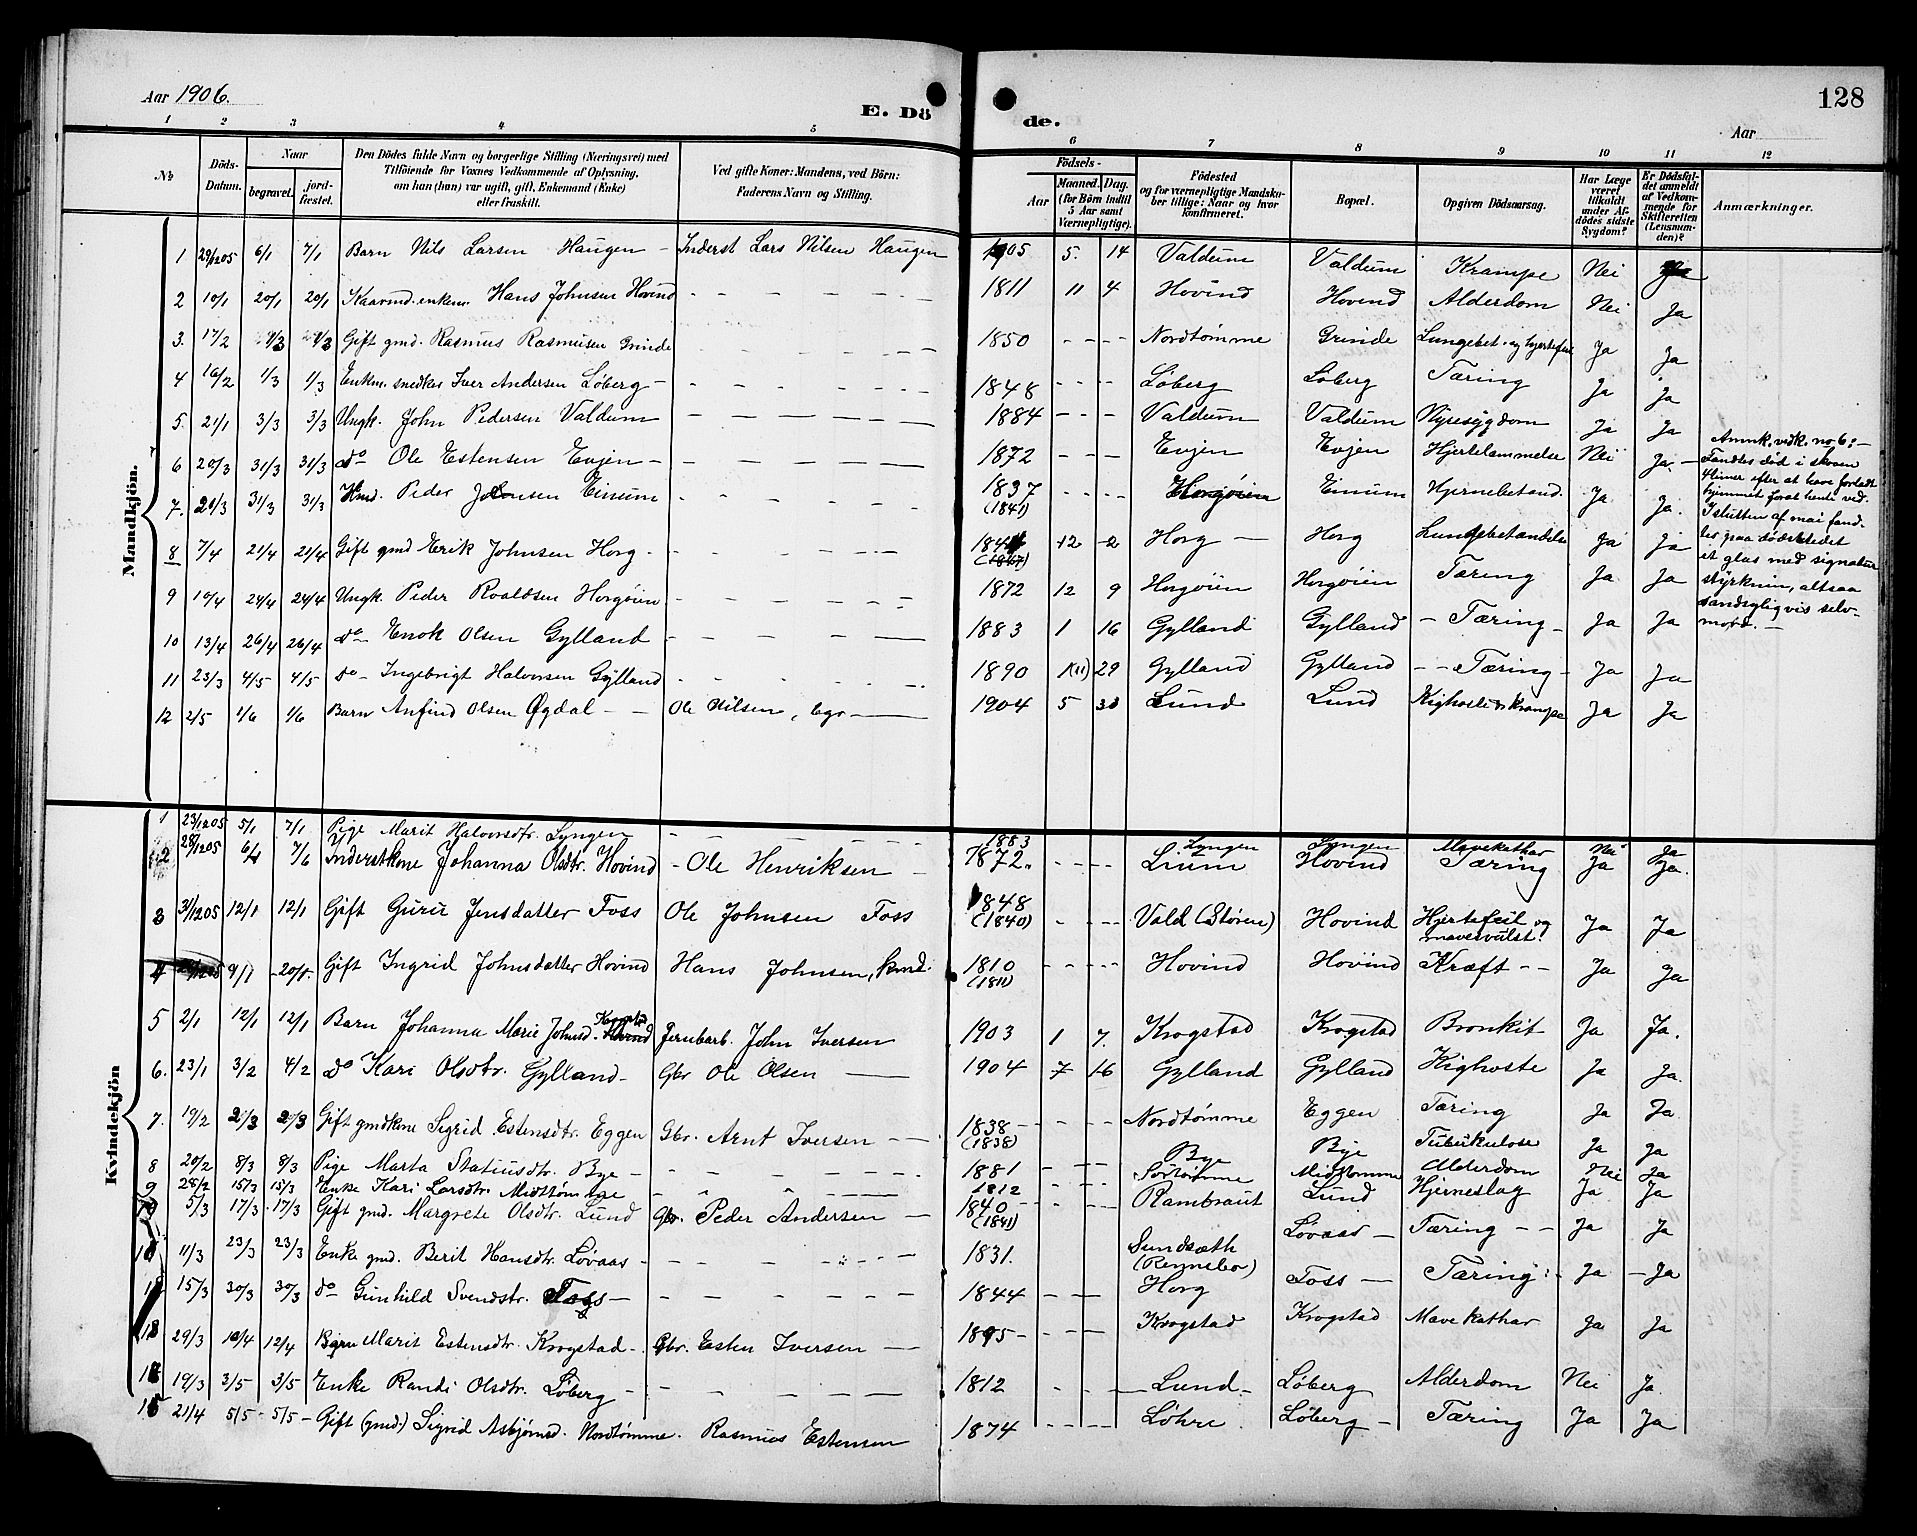 Aar 1906.
E. Dö de.
128
Aar
1 2 3 4 5 6 7 8 9 10 11 12
No
Döds-Datum.
Naar
begravet.
jord-fæstet.
Den Dödes fulde Navn og borgerlige Stilling (Næringsvei) med
Tilföiende for Voxnes Vedkommende af Oplysning,
om han (hun) var ugift, gift, Enkemand (Enke)
eller fraskilt.
Ved gifte Koner: Mandens, ved Börn:
Faderens Navn og Stilling.
Födsels-
Aar
Maaned. Dag.
(for Börn indtil
5 Aar samt
Værnepligtige).
Födested
og for værnepligtige Mandska-
ber tillige: Naar og hvor
konfirmeret.
Bopæl.
Opgiven Dödsaarsag.
Har Læge
været
tilkaldt
under Af-
dödes sidste
Sygdom?
Er Dödsfal-
det anmeldt
af Vedkom-
mende for
Skifteretten
(Lensman-
den)?
Anmærkninger.
Mandkjön.
1 29/12 05 6/1 7/1 Barn Nils Larsen Haugen - Inderst Lars Nilsen Haugen 1905 5. 14 Valdum Valdum Krampe Nei
2 10/1 20/1 20/1 Kaarmd. enkem. Hans Johnsen Hovind 1811 11 4 Hovind Hovind Alderdom Nei Ja
3. 17/2 Gift gmd. Rasmus Rasmusen Grinde 1850 Nordtømme Grinde Lungebet. og hjertefeil Ja Ja
4 16/2 1/3 1/3 Enkm. snedker Iver Andersen Løberg - 1848 Løberg Løberg Tæring Ja Ja
5. 21/1 3/3 3/3 Ungk. John Pedersen Valdum 1884 Valdum Valdum Nyresygdom Ja Ja
6 20/3 31/3 31/3 do Ole Estensen Evjen - 1872 Evjen Evjen Hjertelammelse Nei Ja. -
7. 21/3 31/3 31/3 Peder Einum 1837 (1841) Horgøien Einum Hjernebetænd. Ja Ja.
8 7/4 21/4 21/4 Gift gmd Erik Johnsen Horg - 12 2 Horg - Horg Lungebetændelse Ja Ja
9 10/4 24/4 24/4 Ungk. Peder Roaldsen Horgøien 1872 12 9 Horgøien Horgøien Tæring Ja Ja
10 13/4 26/4 26/4 do Enok Olsen Gylland 1883 1 16 Gylland Gylland - Tæring - Ja Ja
11 23/3 4/5 4/5 do Ingebrigt Halvorsen Gylland 1890 1(11) 29 Gylland Gylland - - Tæring - Ja Ja
12 2/5 1/6 1/6 Barn Anfind Olsen Øgdal - - Ole Nilsen, bgr. 1904 5 Lund Lund Kighoste og Krampe Ja Ja
Anmk. vedk. no 6: -
Fandtes død i skoven
4 timer efter at have forladt
hjemmet forat hente ved.
I slutten af mai fand-
tes paa dødsstedet
et glas med signatur
styrknin, altsaa
sandsyligvis selv-
mord. -
Kvindekjön
1 23/12 05 5/1 7/1 Pige Marit Halvorsdtr. Lyngen 1883 Lyngen Lyngen Mavekathar Nei Ja
2 28/12 05 Inderstkone Johanna Olsdtr. Hovind - Ole Henriksen 1872. Lium Hovind Tæring Ja Ja.
3 31/12 05 12/1 12/1 Gift Guru Jensdatter Foss Ole Johnsen Foss 1848 (1840) Vald (Støren) Hovind Hjertefeil og mavesvulst. Ja Ja
4 9/1 Gift Ingrid Johnsdatter Hovind Hans Johnsen, kmd. 1810 (1811) Hovind Hovind Kræft - - Ja Ja
5 2/1 12/1 12/1 Barn Johanna Marie Johnsd. Krogstad Jernbarb. John Iversen 1903 1 7. Krogstad Krogstad Bronkit Ja Ja.
6. 23/1 3/2 4/2 do Kari Olsdtr. Gylland - Gbr Ole Olsen 1904 7 16 Gylland Gylland Kighoste Ja Ja.
7. 19/2 Gift gmdkone Sigrid Estensdtr. Eggen Gbr. Arnt Iversen 1838 (1838) Nordtømme Eggen Tæring Ja Ja.
8 20/2 8/3 8/3 Pige Marta Statiusdtr. Bye - 1881 Bye Bye Tuberkulose Ja Ja
9 28/2 15/3 15/3 Enke Kari Larsdtr. Midttømme 1812 Sørtømme Midttømme Alderdom Nei Ja
10 5/3 17/3 17/3 Gift gmd. Margrete Olsdtr. Lund Gbr. Peder Andersen 1840 (1841) Rambraut Lund Hjerneslag Ja Ja
11/3 23/3 23/3 Enke gmd. Berit Hansdtr. Løvaas - 1831. Sundsæth (Rennebo) Løvaas - Tæring - - Ja Ja
15/3 30/3 30/3 do Gunhild Svendsdtr. Foss - 1844 Horg Foss - Tæring Ja - Ja
13 29/3 12/4 Barn Marit Estensdtr. Krogstad - Gbr. Esten Iversen 1895 - Krogstad Krogstad Mavekathar Ja Ja
19/3 3/5 3/5 Enke Randi Olsdtr. Løberg - 1812 Lund - Løberg Alderdom Nei Ja.
15 21/4 5/5 - 5/5 - Gift (gmd.) Sigrid Asbjørnsd. Nordtømme. Rasmus Estensen 1874 Løhre Løberg - Tæring Ja Ja